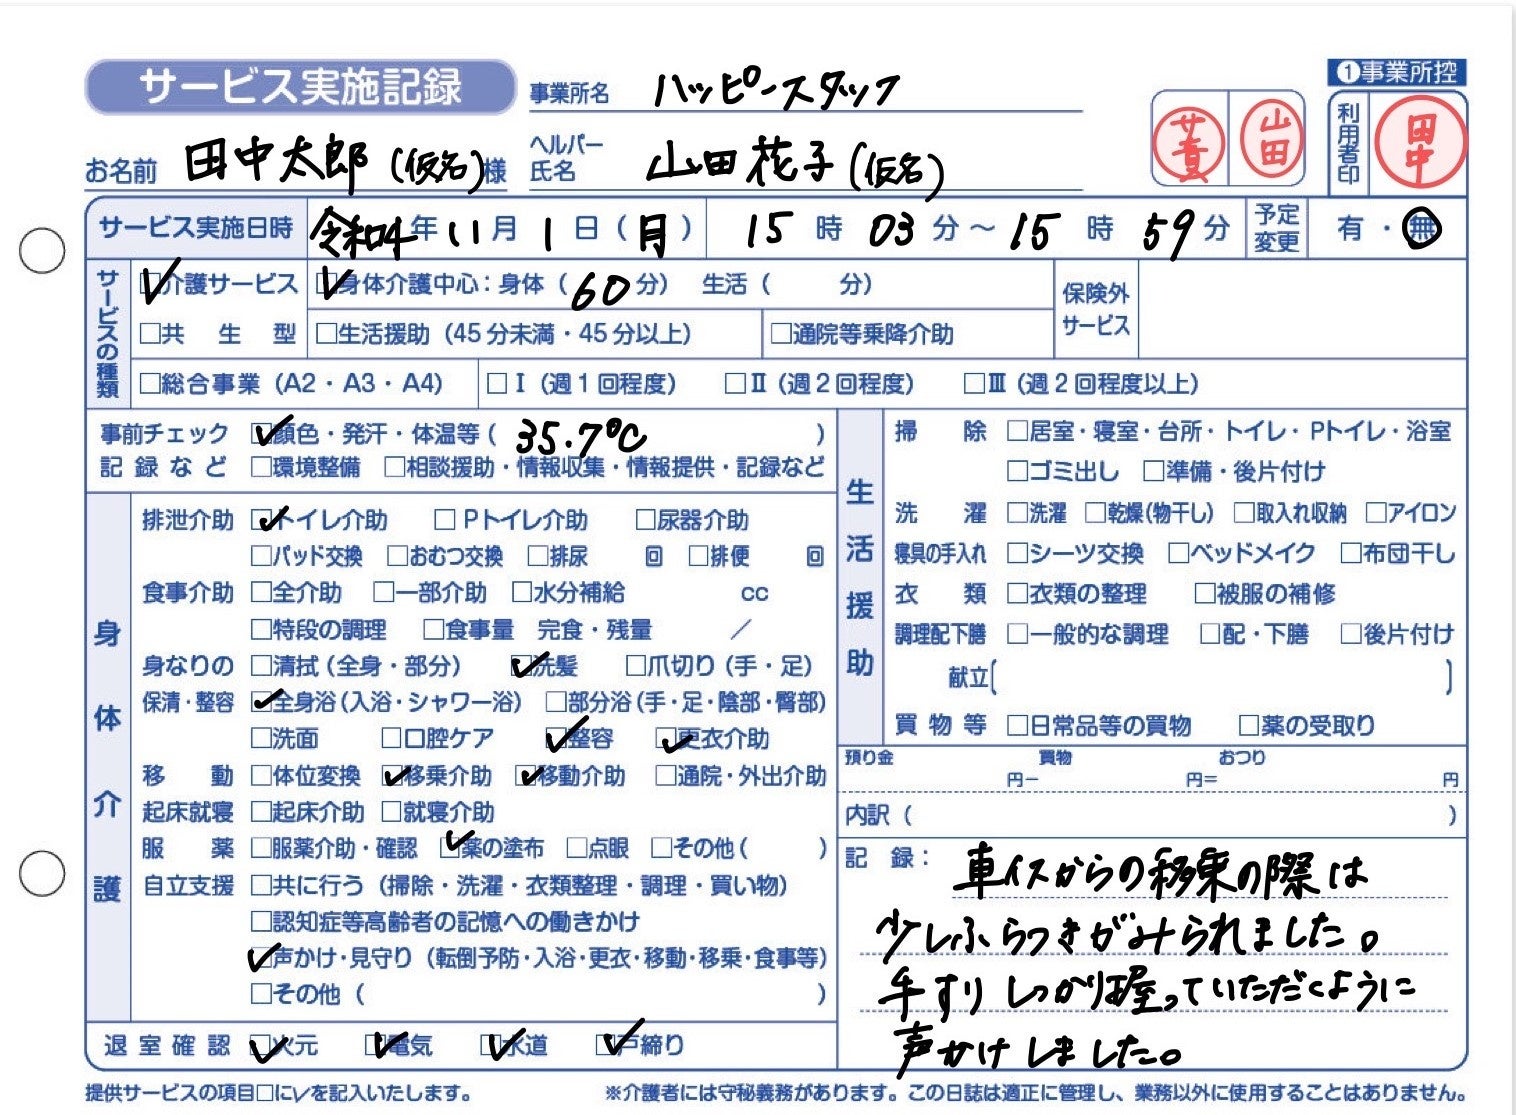 サービス実施記録
事業所名 ハッピースタッフ
❶事業所控
お名前 田中太郎(仮名)様
ヘルパー氏名 山田花子(仮名)
山田
利用者印 田中
サービス実施日時 令和4年11月1日(月) 15時03分～15時59分 予定変更 有・無
サービスの種類
☑介護サービス ☑身体介護中心：身体(60分) 生活( 分)
保険外サービス
□共生型 □生活援助(45分未満・45分以上) □通院等乗降介助
□総合事業(A2・A3・A4) □Ⅰ(週1回程度) □Ⅱ(週2回程度) □Ⅲ(週2回程度以上)
事前チェック ☑顔色・発汗・体温等(35.7℃)
記録など □環境整備 □相談援助・情報収集・情報提供・記録など
身体介護
排泄介助 ☑トイレ介助 □Pトイレ介助 □尿器介助
□パッド交換 □おむつ交換 □排尿 回 □排便 回
食事介助 □全介助 □一部介助 □水分補給 cc
□特段の調理 □食事量 完食・残量 ／
身なりの □清拭(全身・部分) ☑洗髪 □爪切り(手・足)
保清・整容 ☑全身浴(入浴・シャワー浴) □部分浴(手・足・陰部・臀部)
□洗面 □口腔ケア ☑整容 ☑更衣介助
移動 □体位変換 ☑移乗介助 ☑移動介助 □通院・外出介助
起床就寝 □起床介助 □就寝介助
服薬 □服薬介助・確認 ☑薬の塗布 □点眼 □その他( )
自立支援 □共に行う(掃除・洗濯・衣類整理・調理・買い物)
□認知症等高齢者の記憶への働きかけ
☑声かけ・見守り(転倒予防・入浴・更衣・移動・移乗・食事等)
□その他( )
退室確認 ☑火元 ☑電気 ☑水道 ☑戸締り
生活援助
掃除 □居室・寝室・台所・トイレ・Pトイレ・浴室
□ゴミ出し □準備・後片付け
洗濯 □洗濯 □乾燥(物干し) □取入れ収納 □アイロン
寝具の手入れ □シーツ交換 □ベッドメイク □布団干し
衣類 □衣類の整理 □被服の補修
調理配下膳 □一般的な調理 □配・下膳 □後片付け
献立[ ]
買物等 □日常品等の買物 □薬の受取り
預り金 買物 おつり
円－ 円＝ 円
内訳( )
記録：車イスからの移乗の際は
少しふらつきがみられました。
手すりしっかり握っていただくように
声かけしました。
提供サービスの項目□に✓を記入いたします。
※介護者には守秘義務があります。この日誌は適正に管理し、業務以外に使用することはありません。